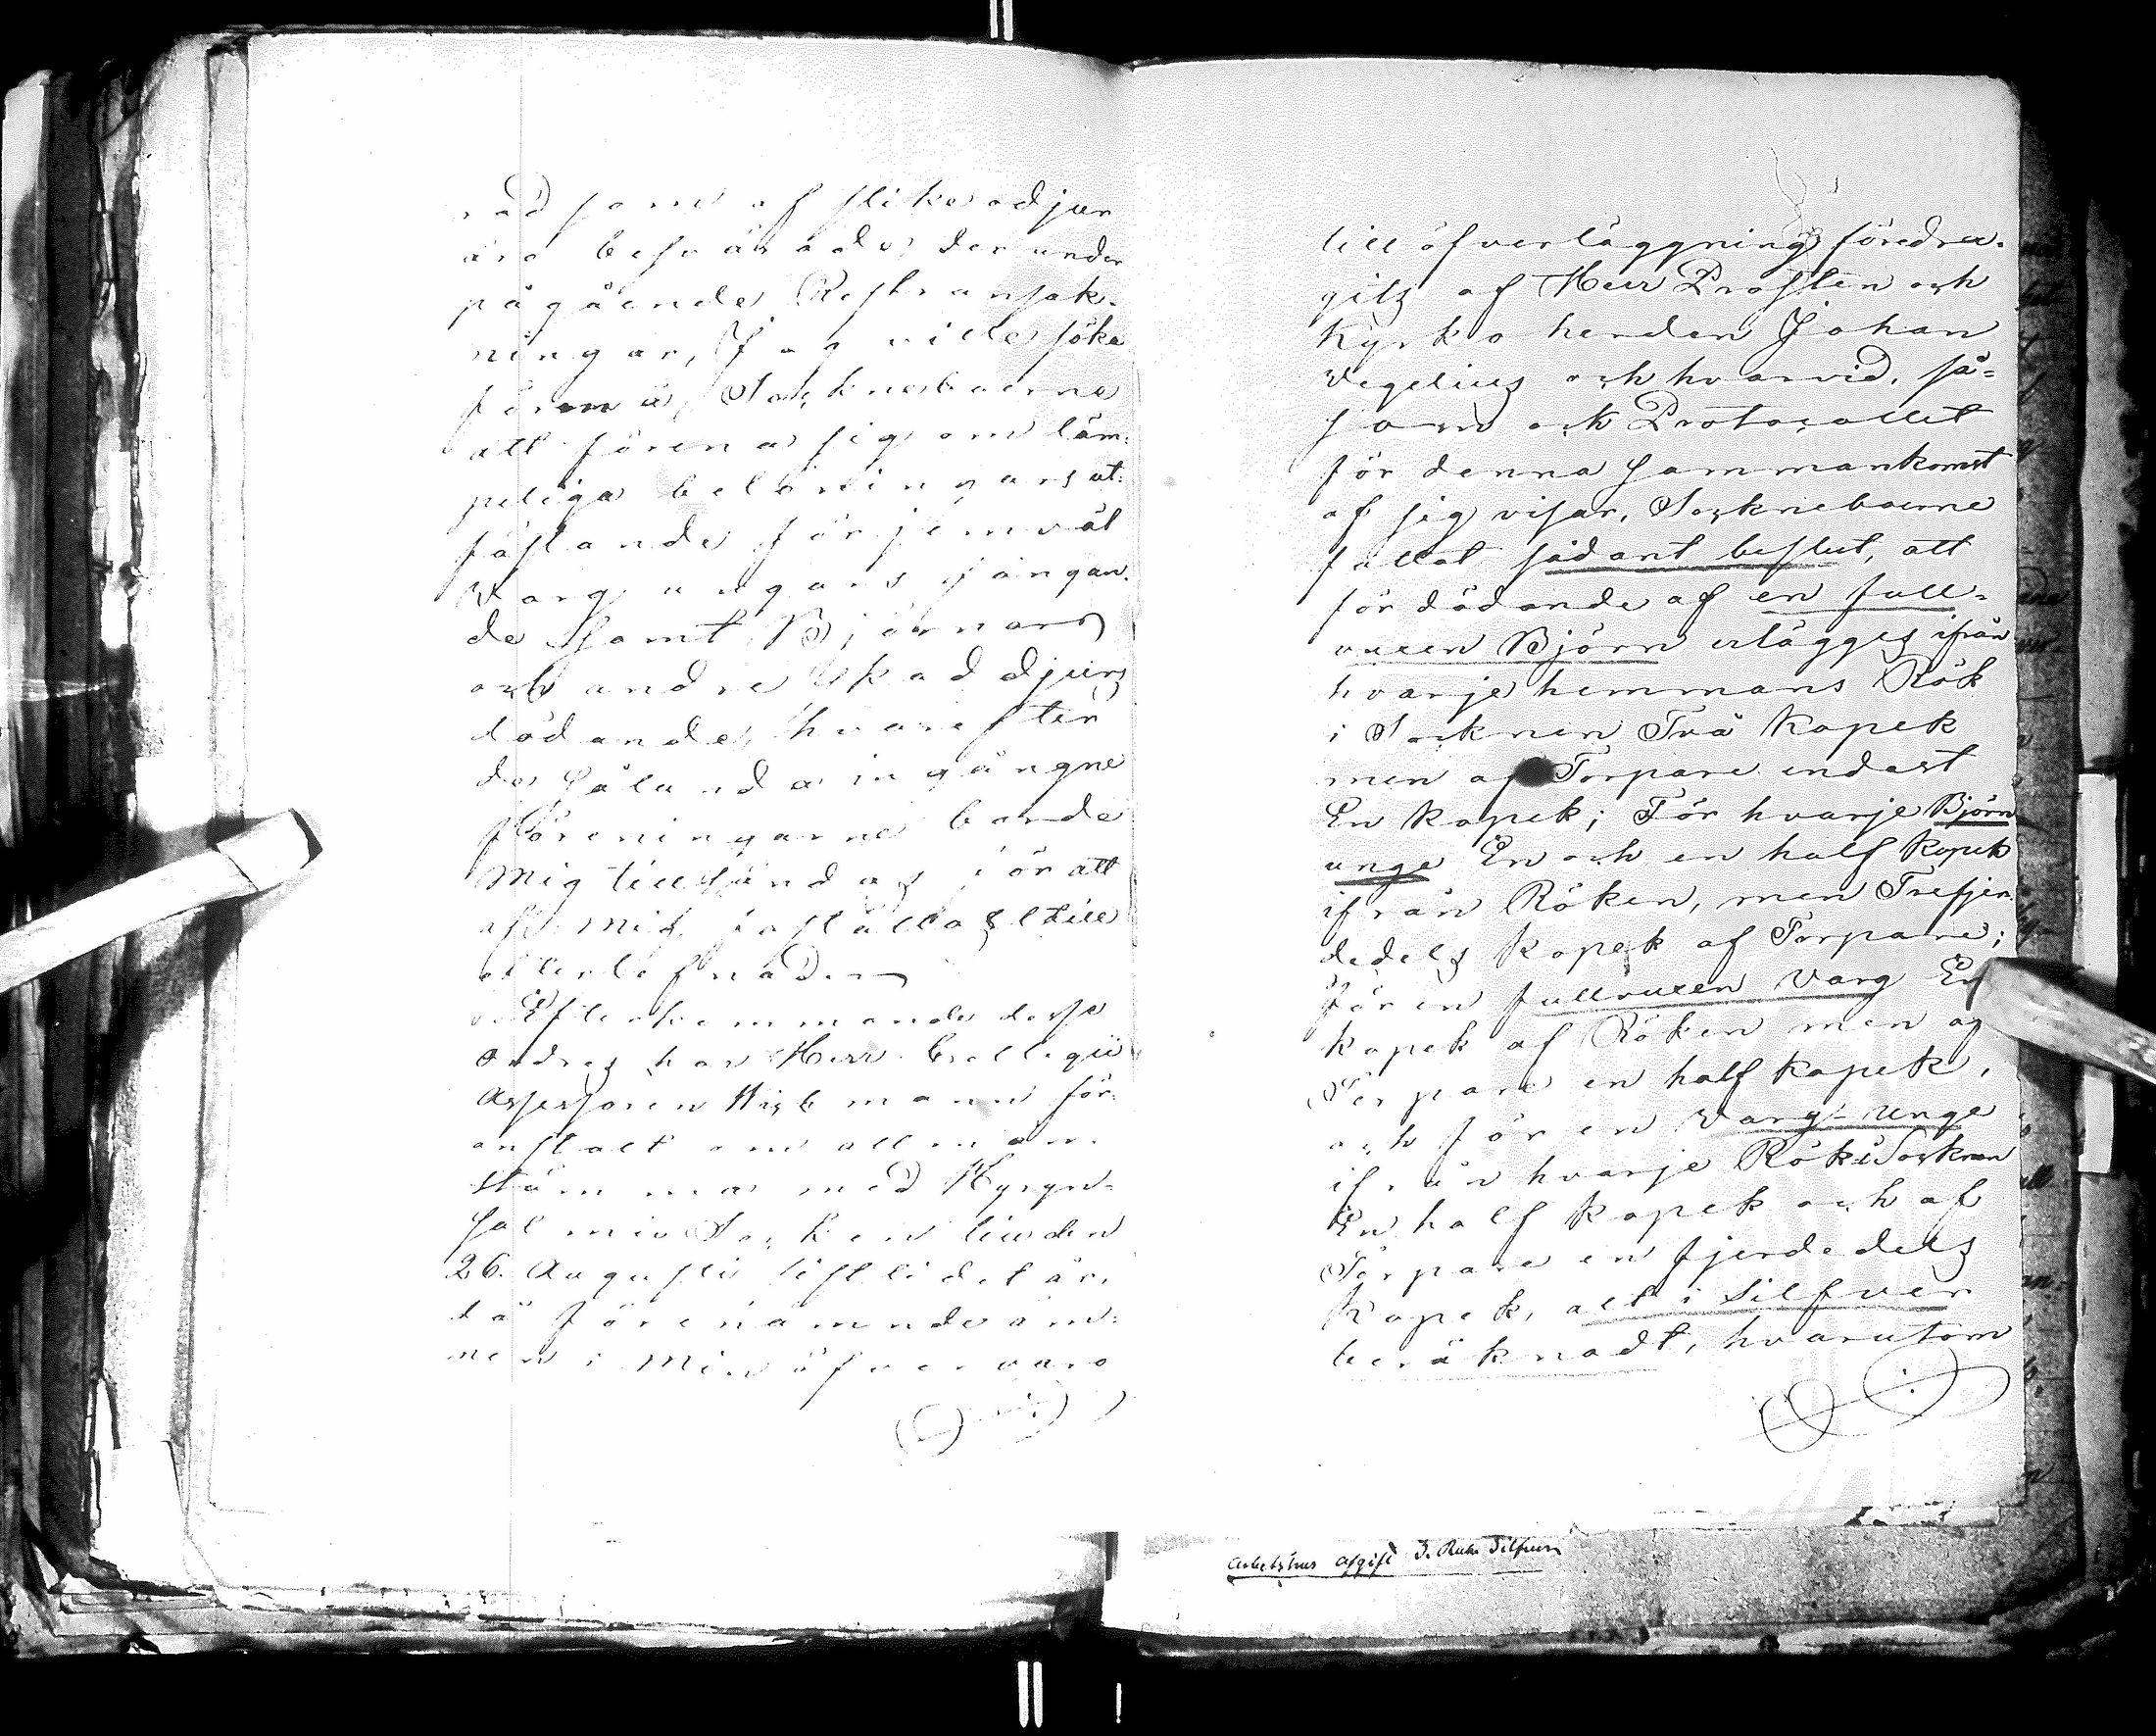 råd som af slike odjur
äro besvärade, der under
pågående Restransak-
ningar, Jag ville söka
förmå Socknesboerne
att förena sig om läm-
peliga belöningars ut-
fästande för jemväl
Varg ungars fångan-
de samt Björnars
och andre Skaddjurs
dödande, hvarefter
de sålunda ingångne
föreningarne borde
mig tillsändas för att
af mig fastställas till
efterlefnad.
Efterkommande desse
ordres har Herr Collegii
Assessoren Wibmann för-
anstalt om allmän
stämma med Hyryn-
salmi Socken till den
26. Augusti sistlidet år,
då förenämnde äm-
nen i min öfvervaro
till öfverläggning föredra-
gits af Herr Prosten och
Kyrkoherden Johan
Vegelius och hvarvid, så-
som ock Protocollet
för denna Sammankomst
af sig visar, Sockneboerne
fattat sådant beslut, att
för dödande af en full-
vuxen Björn erlägges ifrån
hvarje hemmans Rök
i Socknen Två kopek
men af Torpare endast
En kopek; För hvarje Björn
unge En och en half kopek
ifrån Röken, men Trefjer-
dedels kopek af Torpare;
för en fullvuxen Varg En
kopek af Röken men af
Torpare en half kopek,
och för en Varg-unge
ifrån hvarje Rök i Socknen
En half kopek och af
Torpare en fjerdedels
kopek, allt i Silfver
beräknadt, hvarutom
Arbetshus afgift 3. Rub. Silfver